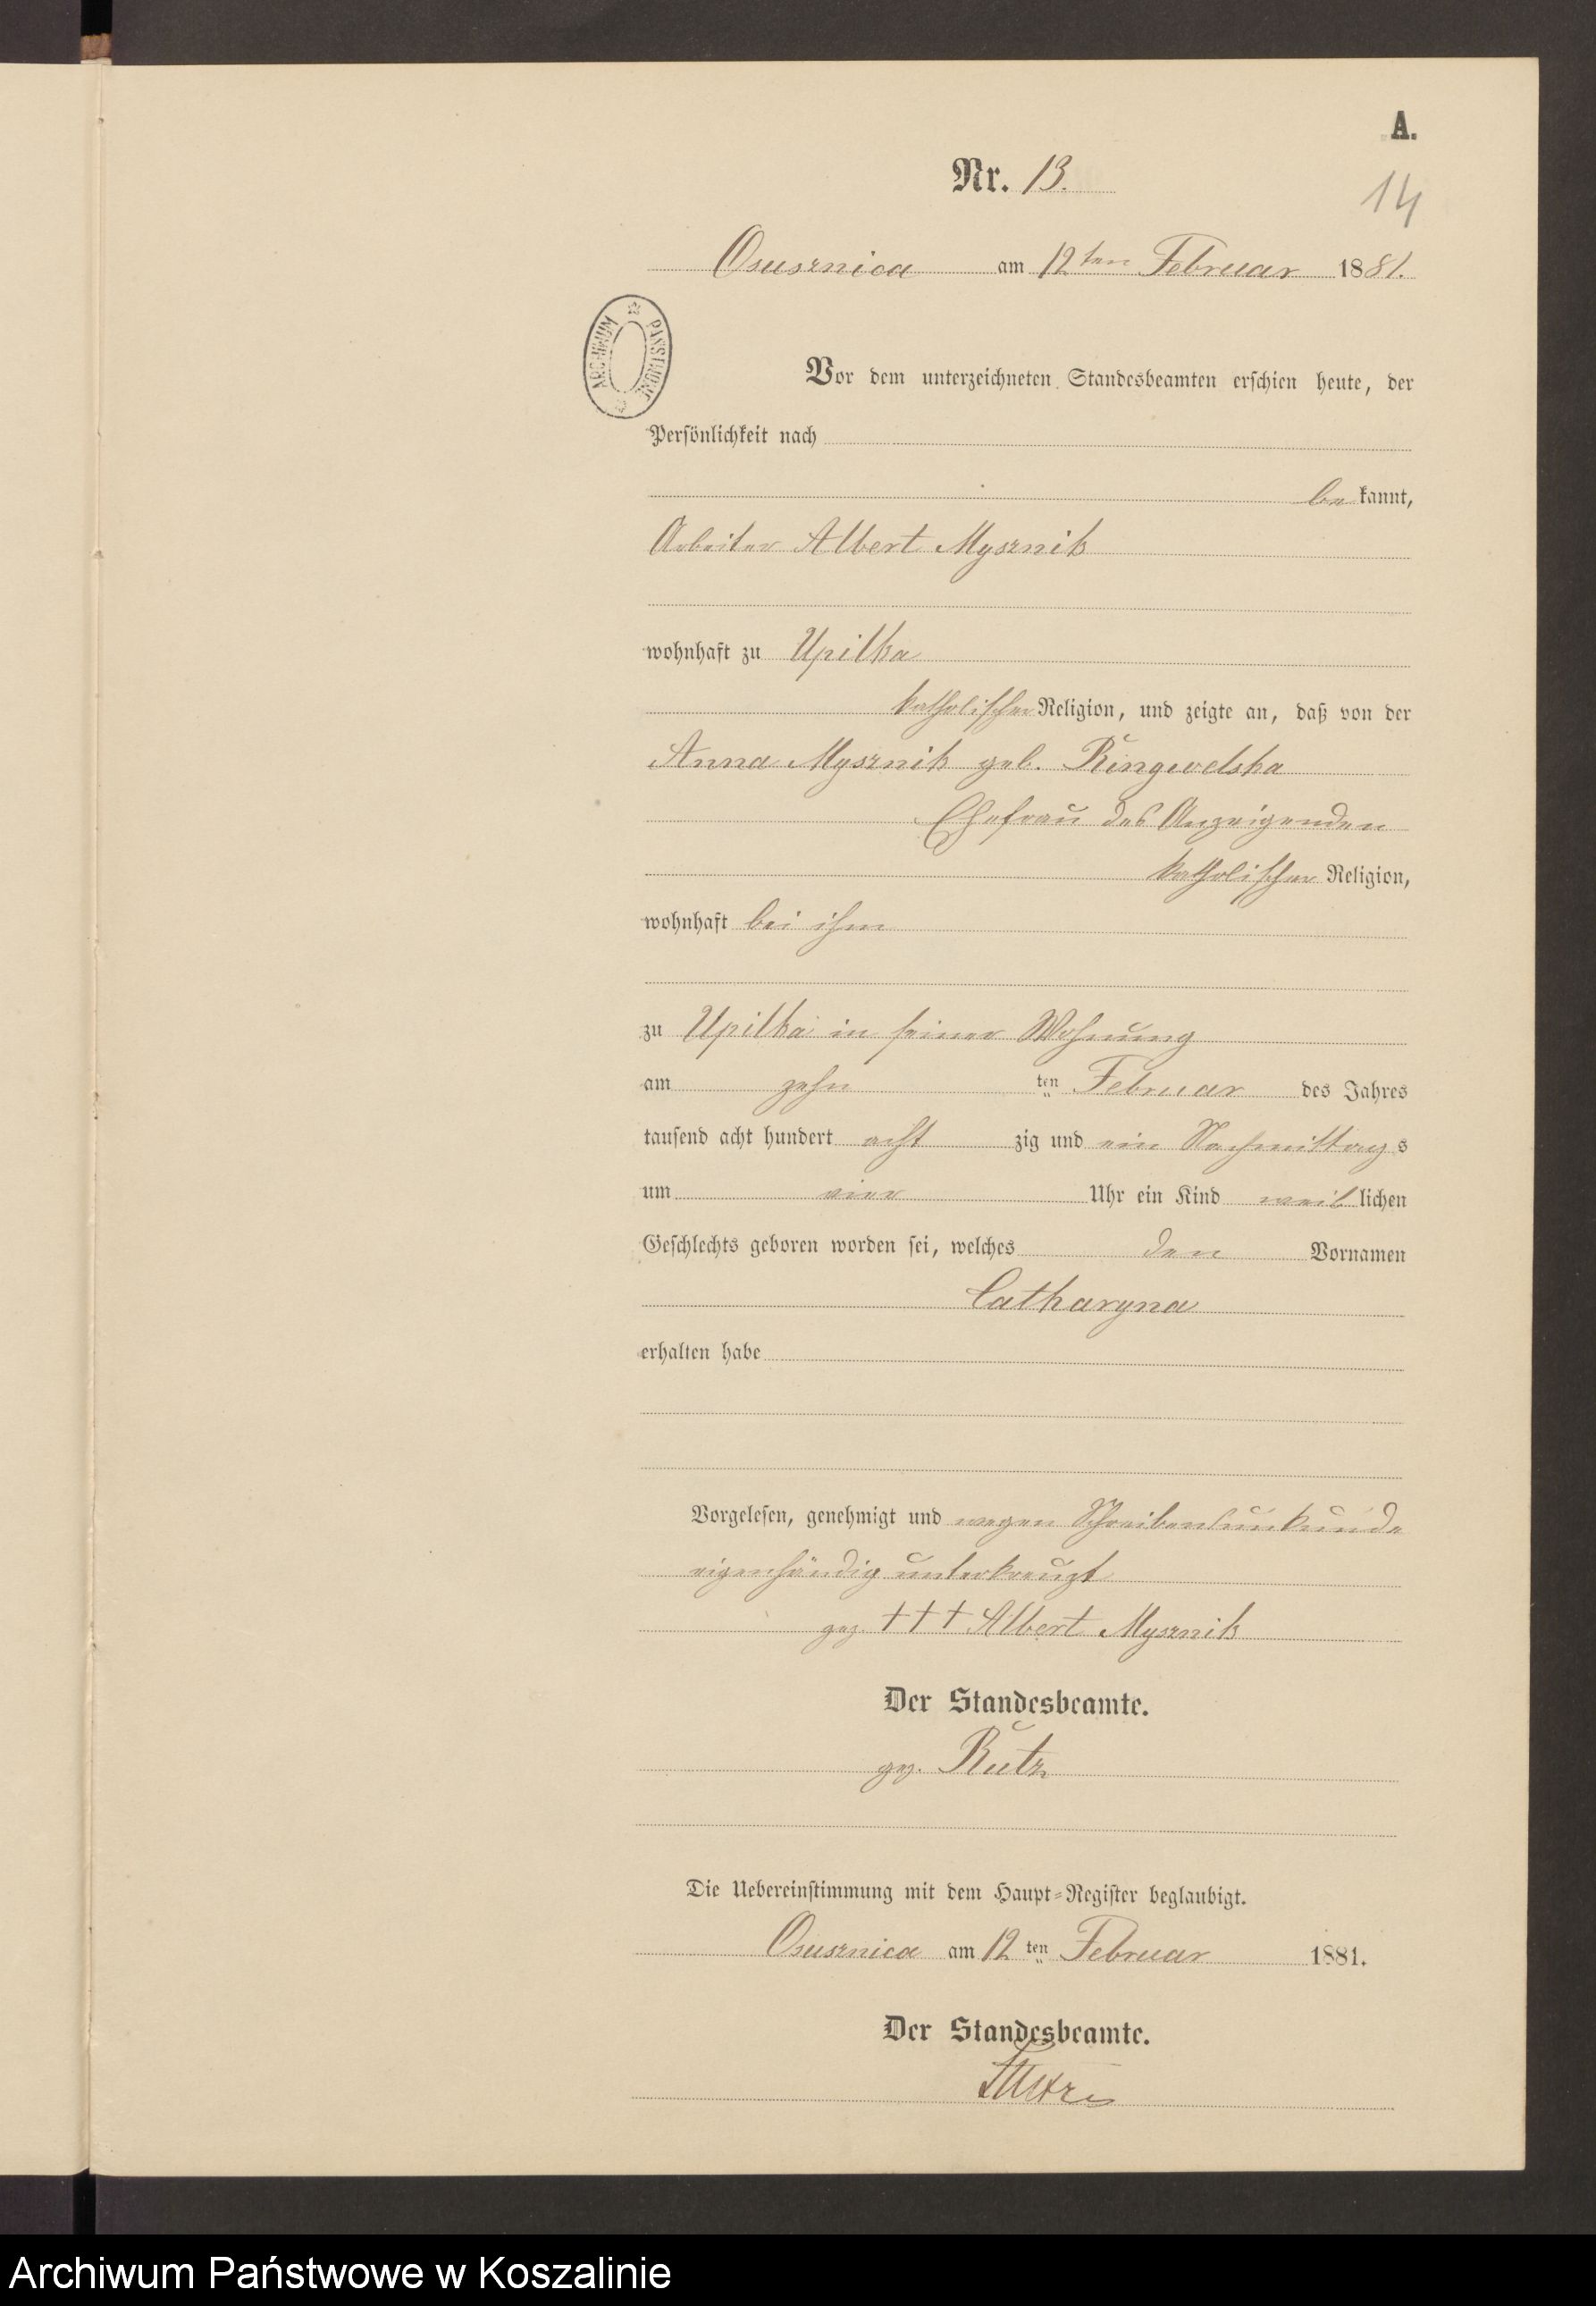 A.
Nr. 13.
14
Osusznica am 12ten Februar 1881.
ARCHIWUM PAŃSTWOWE
Vor dem unterzeichneten Standesbeamten erschien heute, der
Persönlichkeit nach
bekannt,
Arbeiter Albert Mysznik
wohnhaft zu Upilka
katholischer Religion, und zeigte an, daß von der
Anna Mysznik geb. Ringwelska
Ehefrau des Anzeigenden
katholischer Religion,
wohnhaft bei ihm
zu Upilka in seiner Wohnung
am zehn ten Februar des Jahres
tausend acht hundert acht zig und ein Nachmittags
um vier Uhr ein Kind weiblichen
Geschlechts geboren worden sei, welches den Vornamen
Catharyna
erhalten habe
Vorgelesen, genehmigt und wegen Schreibensunkunde
eigenhändig unterkreuzt
gez. +++ Albert Mysznik
Der Standesbeamte.
gez. Rutz
Die Uebereinstimmung mit dem Haupt-Register beglaubigt.
Osusznica am 12 ten Februar 1881.
Der Standesbeamte.
Archiwum Państwowe w Koszalinie